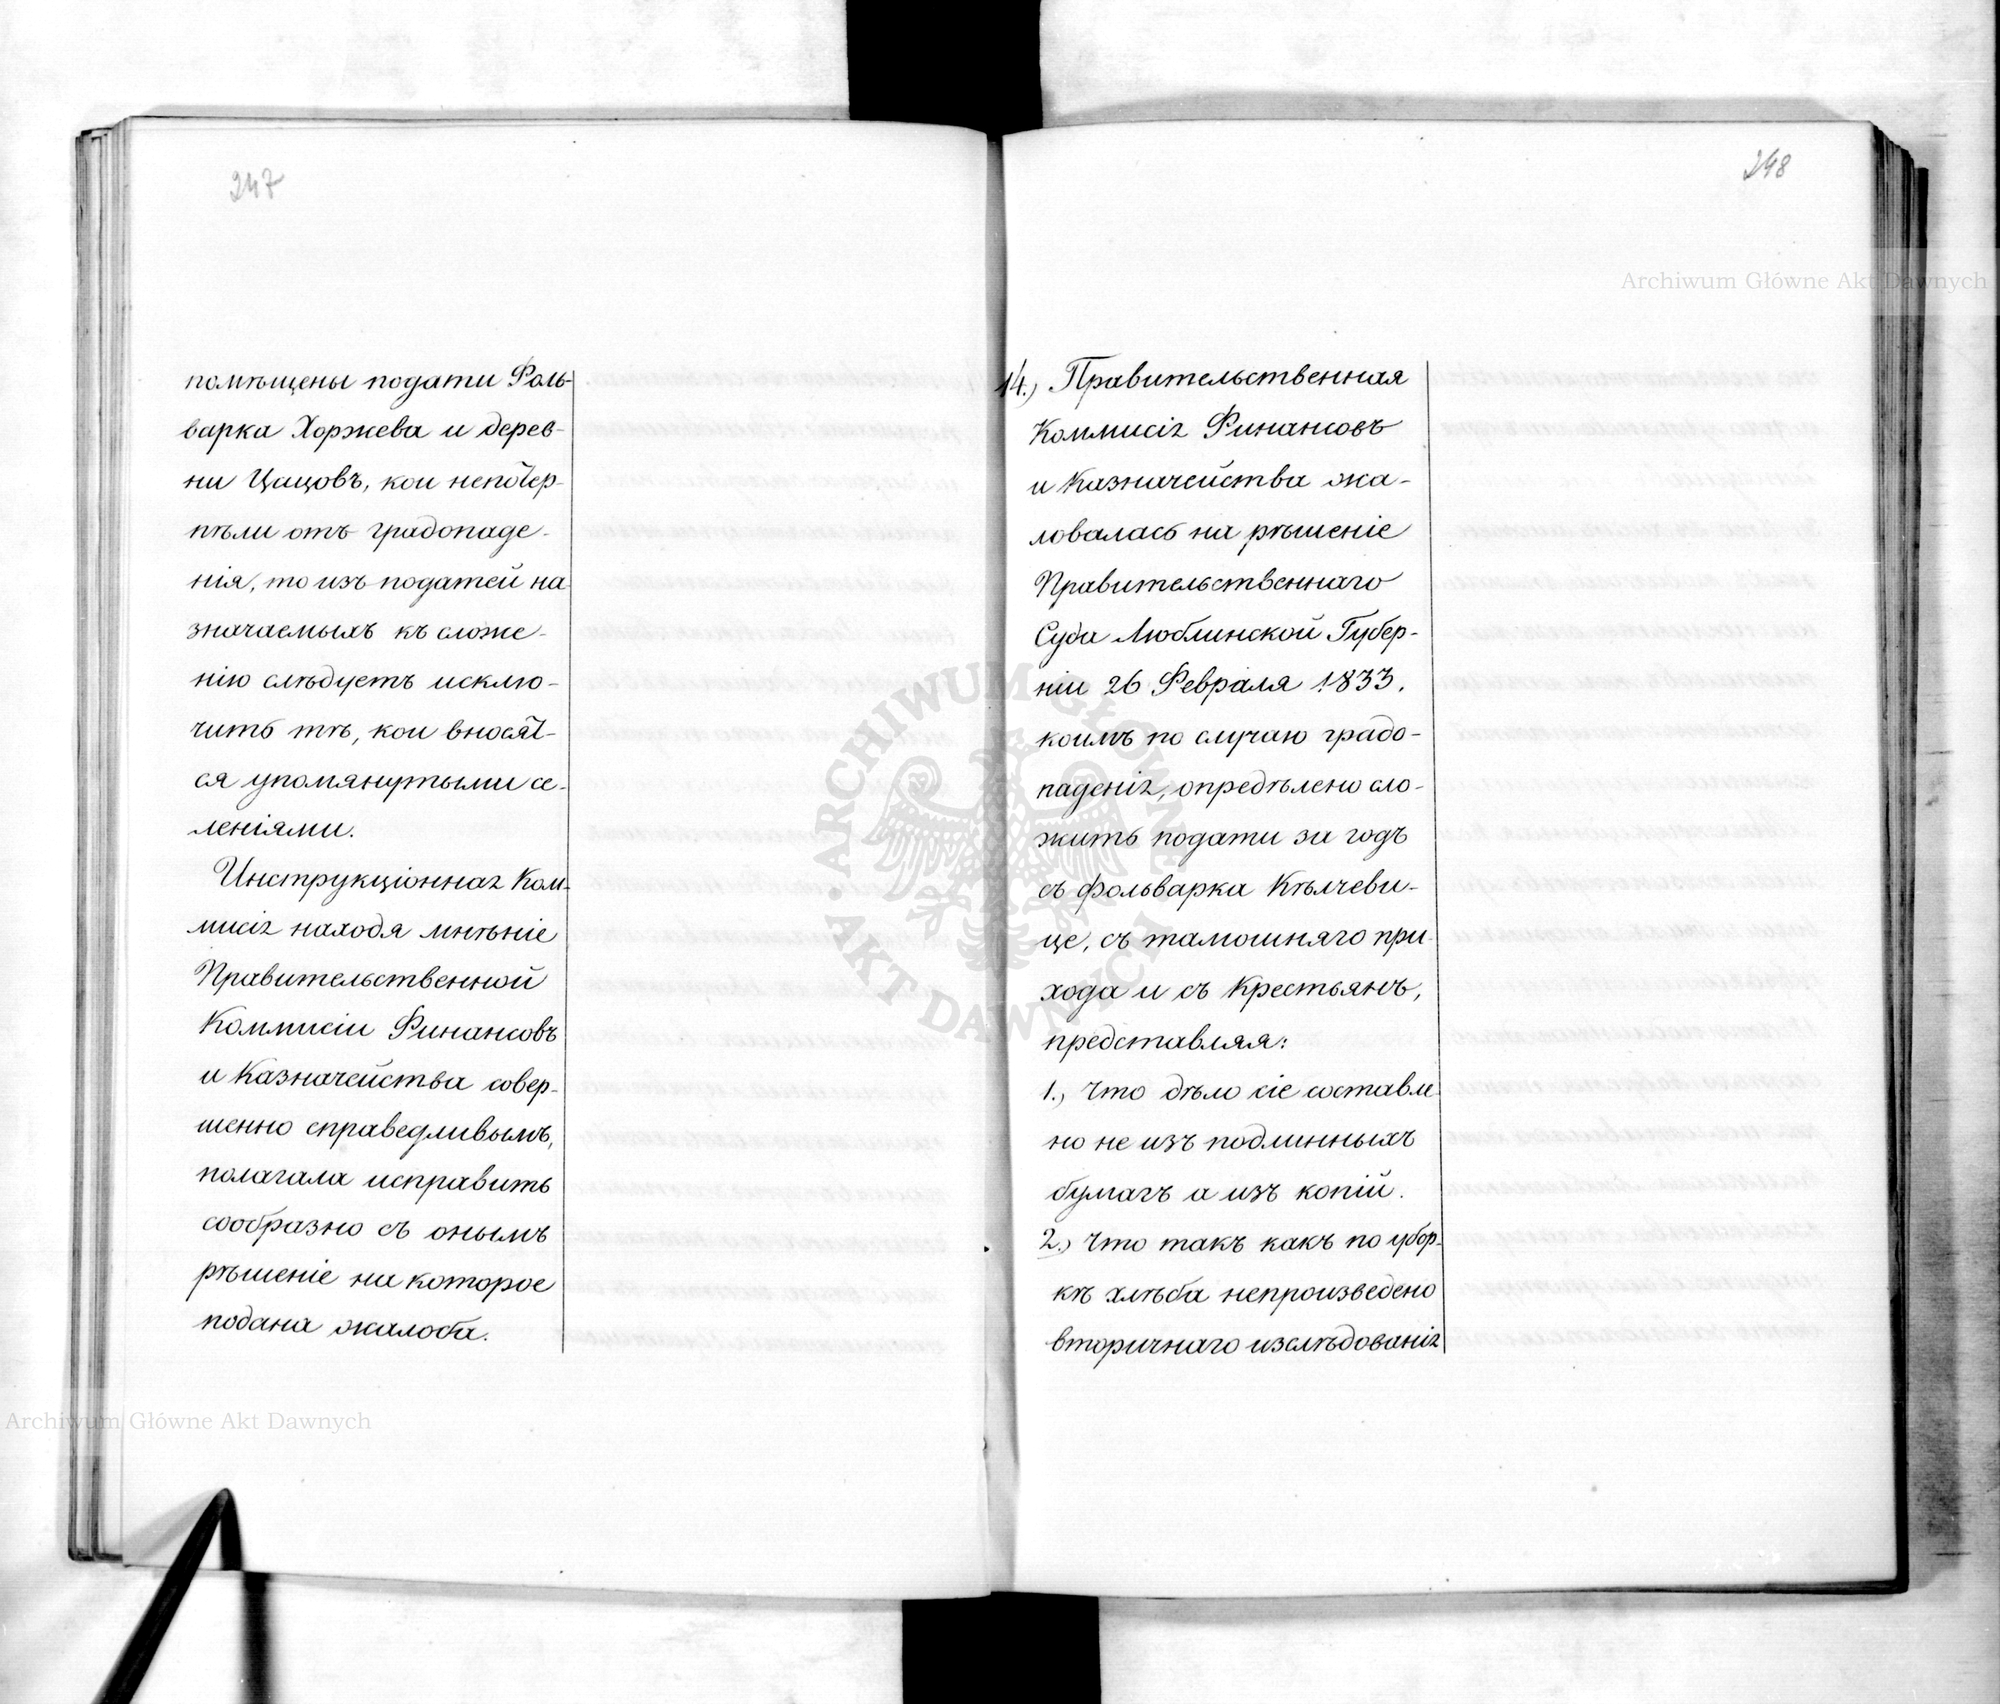 247
помѣщены подати Фоль-
варка Хоржева и дерев-
ни Цацовъ, кои непотер-
пѣли отъ градопаде-
нія, то изъ податей на
значаемыхъ къ сложе-
нію слѣдуетъ исклю-
чить тѣ, кои вносят-
ся упомянутыми се-
леніями.
Инструкціонная Ком-
мисія находя мнѣніе
Правительственной
Коммисіи Финансовъ
и Казначейства совер-
шенно справедливымъ,
полагала исправить
сообразно съ онымъ
рѣшеніе на которое
подана жалоба.
248
14.) Правительственная
Коммисія Финансовъ
и Казначейства жа-
ловалась на рѣшеніе
Правительственнаго
Суда Люблинской Губер-
ніи 26 Февраля 1833.
коимъ по случаю градо-
паденія, опредѣлено сло-
жить подати за годъ
съ фольварка Кѣлчеви-
це, съ тамошняго при-
хода и съ Крестьянъ,
представляя:
1.) Что дѣло сіе составле
но не изъ подлинныхъ
бумагъ а изъ копій.
2.) Что такъ какъ по убор-
кѣ хлѣба непроизведено
вторичнаго изслѣдованія
Archiwum Główne Akt Dawnych
Archiwum Główne Akt Dawnych
ARCHIWUM GŁÓWNE AKT DAWNYCH